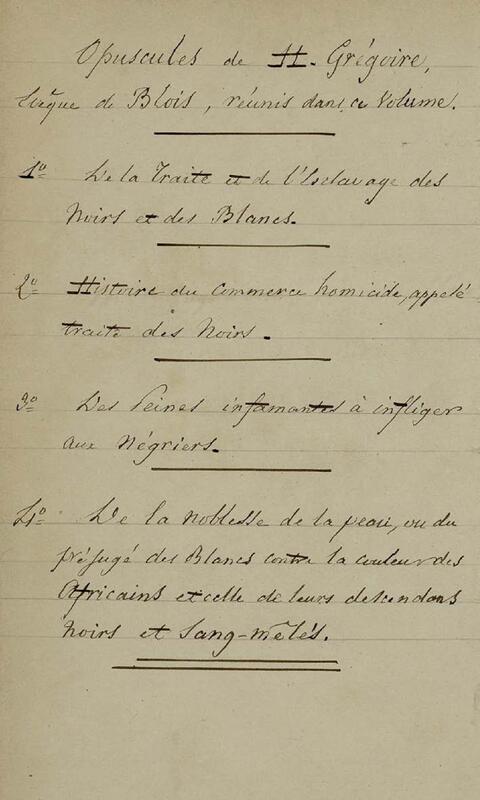 Opuscules de H. Grégoire,
Evêque de Blois, réunis dans ce Volume.
1º De la Traite et de l'Esclavage des
Noirs et des Blancs.
2º Histoire du commerce homicide, appelé
traite des Noirs.
3º Des Peines infamantes à infliger
aux Négriers.
4º De la Noblesse de la peau, ou du
préjugé des Blancs contre la couleur des
Africains et celle de leurs descendans
Noirs et Sang-mêlés.